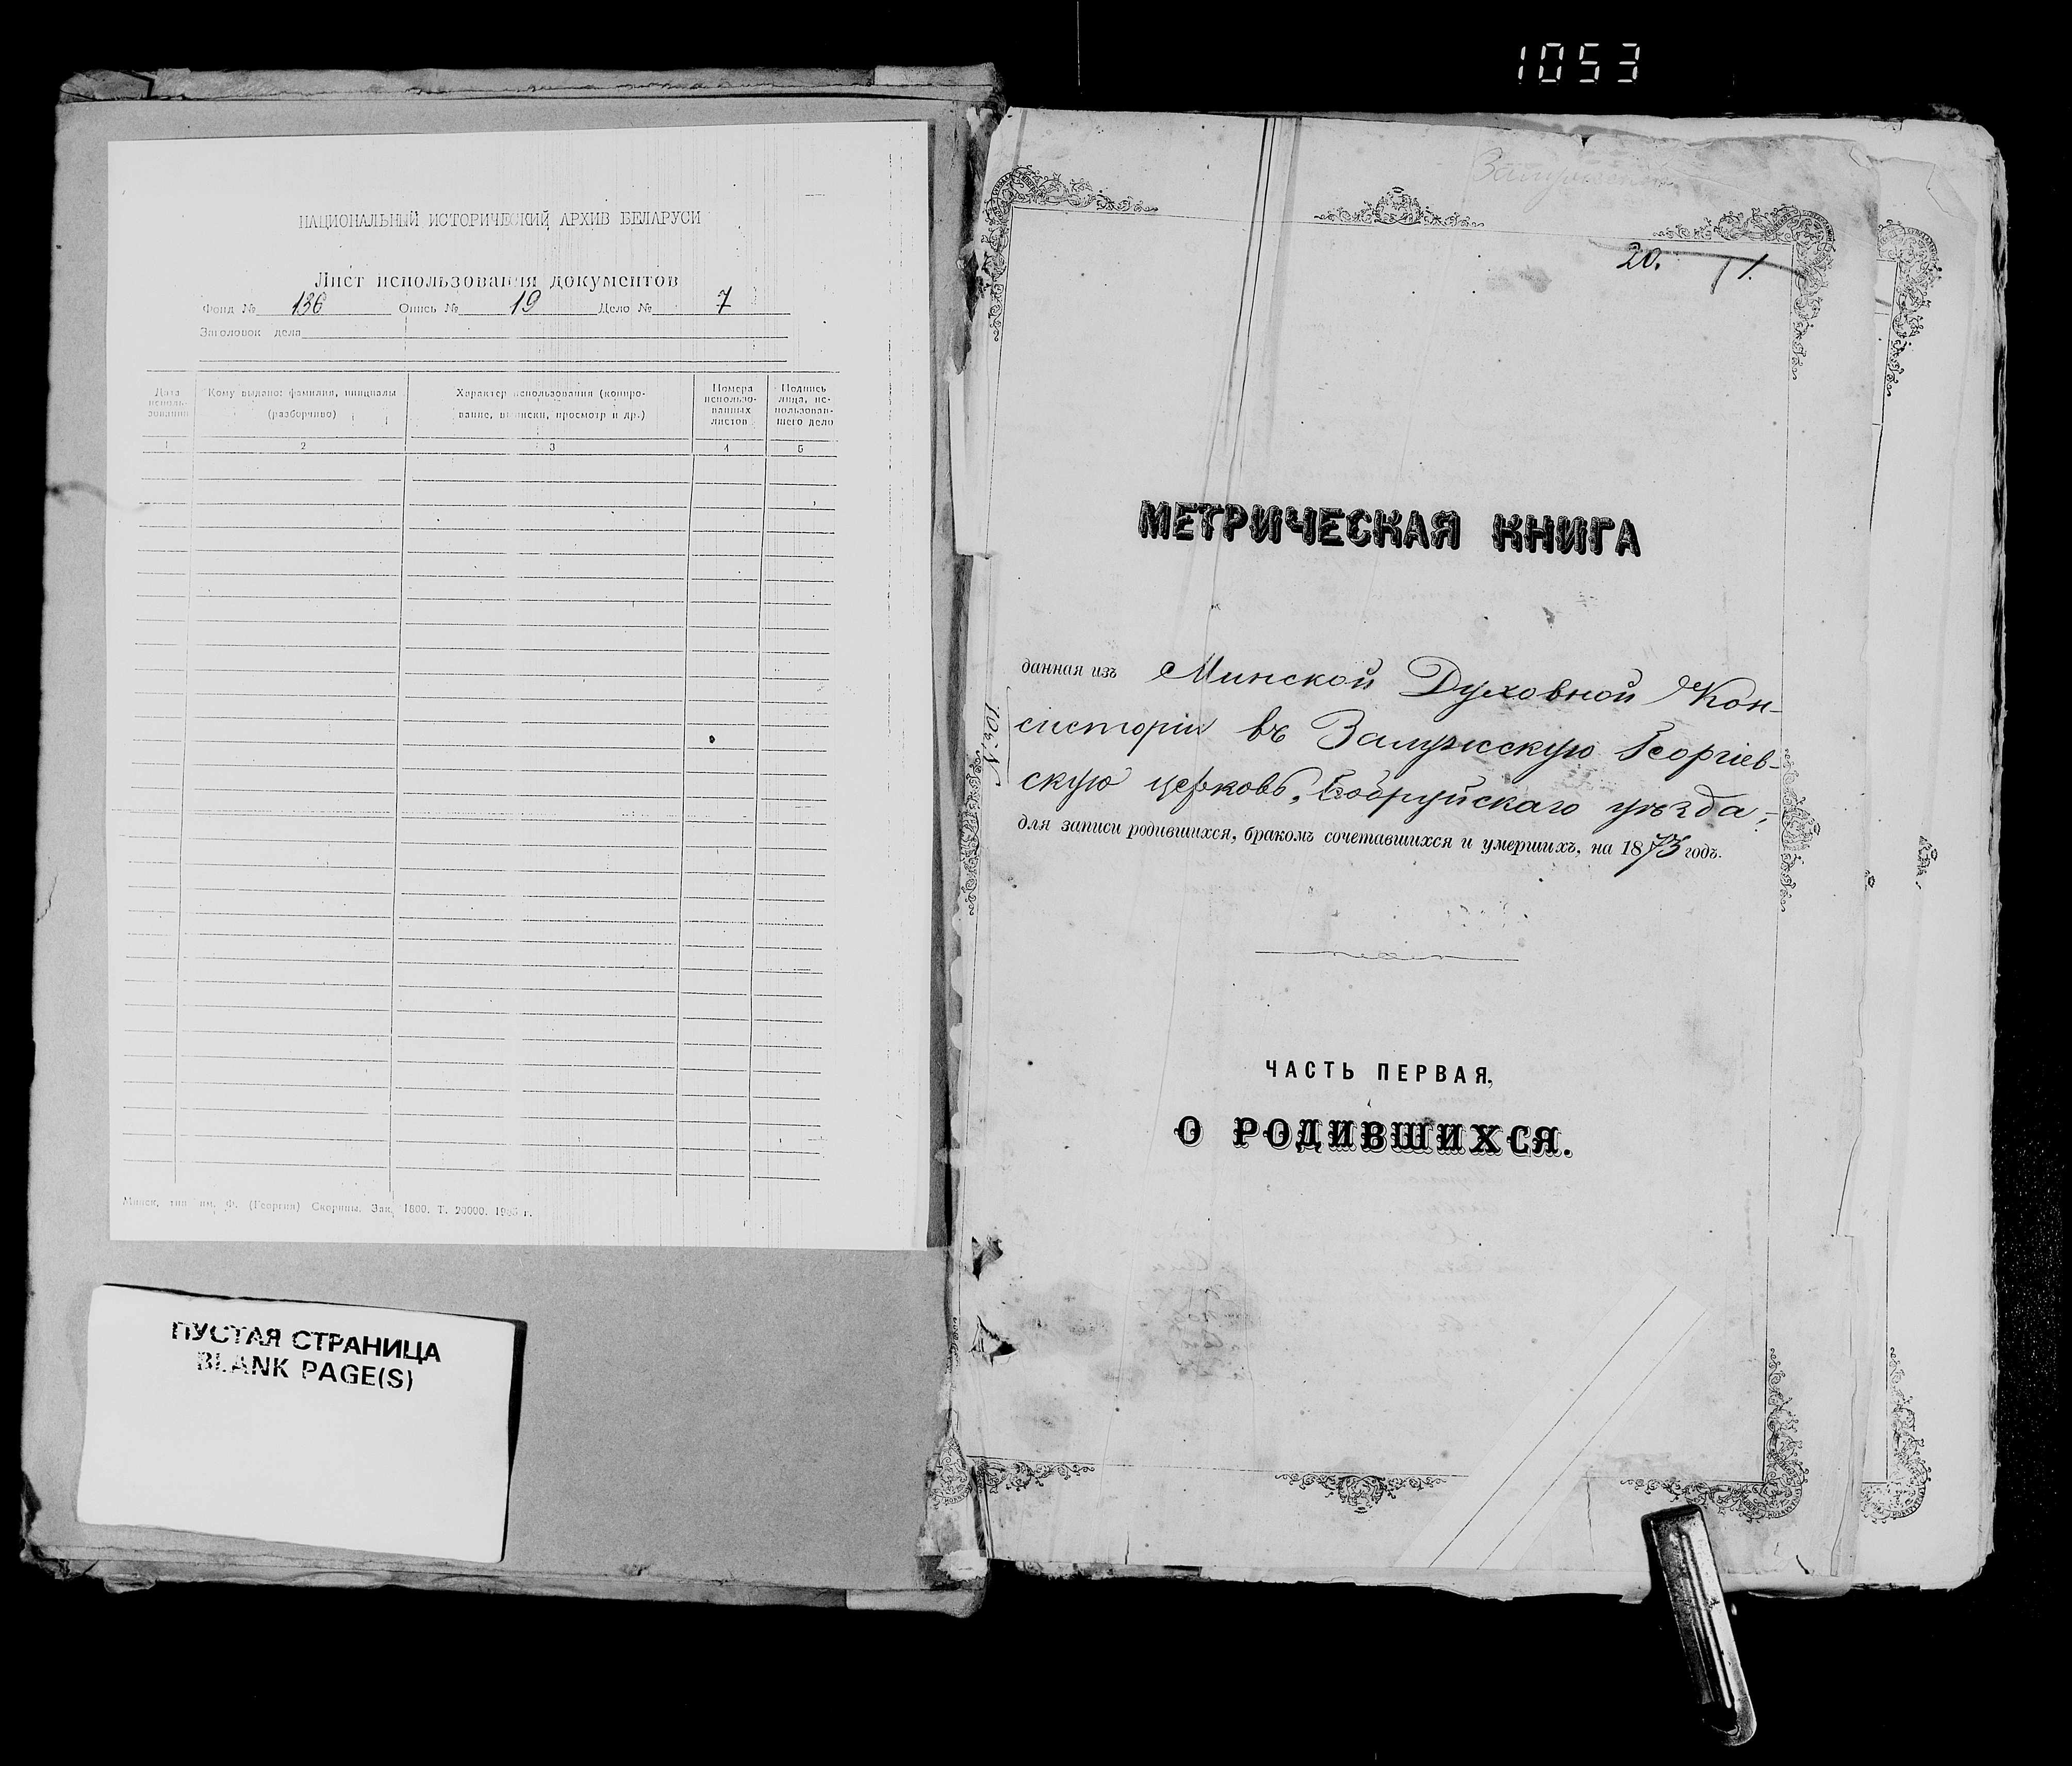 1053
НАЦИОНАЛЬНЫЙ ИСТОРИЧЕСКИЙ АРХИВ БЕЛАРУСИ
Лист использования документов
Фонд № 136 Опись № 19 Дело № 7
Заголовок дела
Дата исполь- зования
Кому выдано: фамилия, инициалы (разборчиво)
Характер использования (копиро- вание, выписки, просмотр и др.)
Номера использо- ванных листов
Подпись лица, ис- пользовав- шего дело
1 2 3 4 5
Минск, тип. им. Ф. (Георгия) Скорины. Зак. 1800. Т. 20000.
ПУСТАЯ СТРАНИЦА
BLANK PAGE(S)
20.
МЕТРИЧЕСКАЯ КНИГА
данная изъ Минской Духовной Кон-
систоріи въ Залужскую Георгіев-
скую церковь, Бобруйскаго уѣзда,
для записи родившихся, бракомъ сочетавшихся и умершихъ, на 1873 годъ.
ЧАСТЬ ПЕРВАЯ,
О РОДИВШИХСЯ.